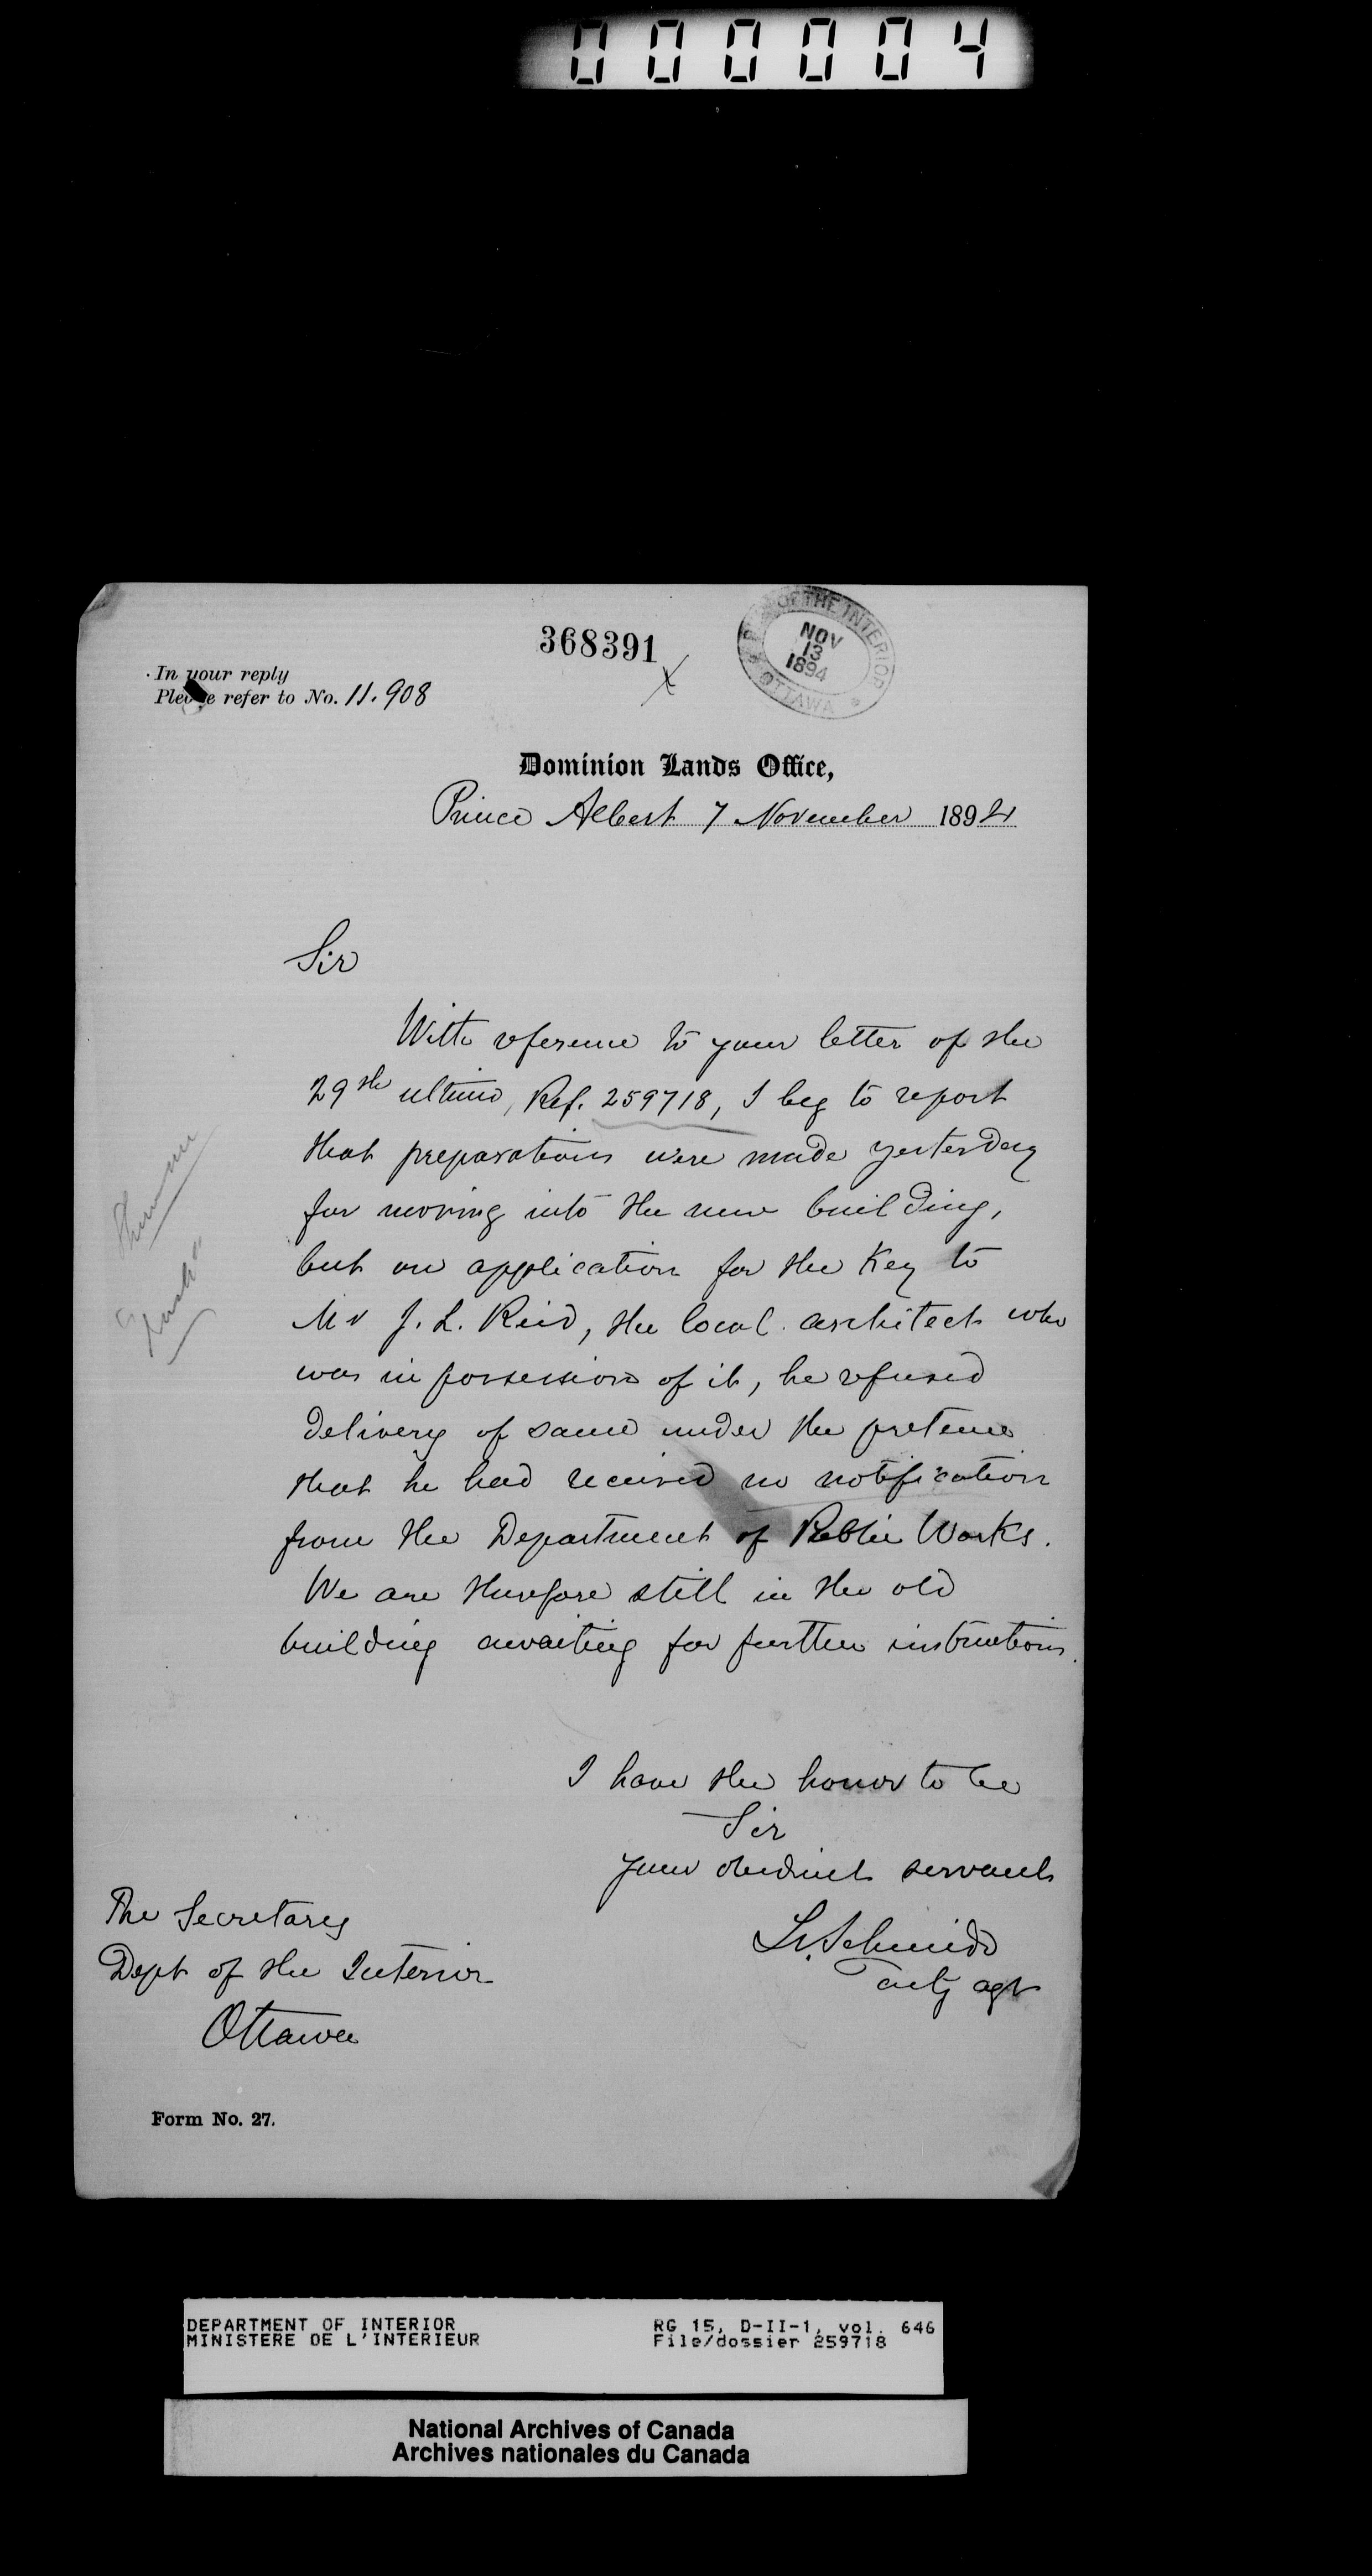 000004
368391
DEPT. OF THE INTERIOR
NOV
13
1894
OTTAWA
In your reply
Please refer to No. 11.908
Dominion Lands Office,
Prince Albert 7 November 1894
Sir
With reference to your letter of the
29th ultimo, Ref. 259718, I beg to report
that preparations were made yesterday
for moving into the new building,
but on application for the Key to
Mr J. L. Reid, the local architect who
was in possession of it, he refused
delivery of same under the pretence
that he had received no notification
from the Department of Public Works.
We are therefore still in the old
building awaiting for further instructions.
I have the honor to be
Sir
your obedient servant
L. Schmidt
actg agt
The Secretary
Dept of the Interior
Ottawa
Form No. 27.
DEPARTMENT OF INTERIOR
MINISTERE DE L'INTERIEUR
RG 15, D-II-1, vol. 646
File/dossier 259718
National Archives of Canada
Archives nationales du Canada